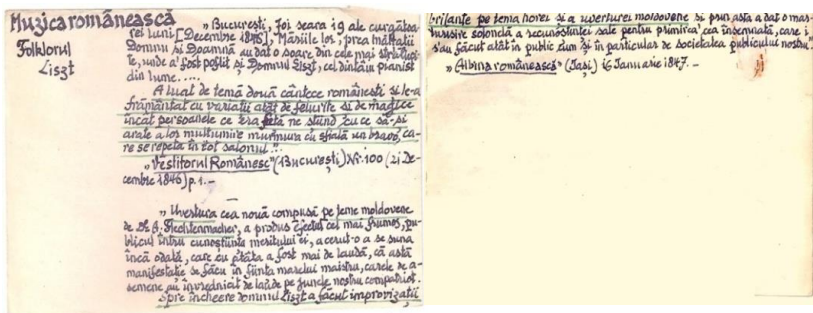 Muzica românească
Folklorul
Liszt
„Bucureşti, Joi seara 19 ale curgătoa-
rei luni [Decembre 1846], Măriile lor, prea înălţaţii
Domnu şi Doamnă au dat o soare din cele mai străluci-
te, unde a fost poftit şi Domnul Liszt, cel dintâiu pianist
din lume.....
A luat de temă două cântece româneşti şi le-a
frământat cu variaţii atât de felurite şi de magice
încât persoanele ce era faţă ne ştiind cu ce să-şi
arate a lor mulţumire murmura cu sfială un bravo, ca-
re se repeta în tot salonul."
„Vestitorul Românesc" (Bucureşti) Nr. 100 (21 De-
cembre 1846) p. 1. –
„Uvertura cea nouă compusă pe teme moldovene
de D. A. Flechtenmacher, a produs efectul cel mai frumos, pu-
blicul întru cunoştinţa meritului ei, a cerut-o a se suna
încă odată, care cu atâta a fost mai de laudă, că astă
manifestaţie se făcu în fiinţa marelui maistru, carele de a-
semene au învrednicit de laude pe junele nostru compatriot.
Spre încheere domnul Liszt a făcut improvizaţii
brilante pe tema horei şi a uverturei moldovene şi prin asta a dat o măr-
turisire solonelă a recunoştinţei sale pentru primirea cea însemnată, care i
s'au făcut atât în public cum şi în particular de societatea publicului nostru".
„Albina românească" (Iaşi) 16 Ianuarie 1847. –